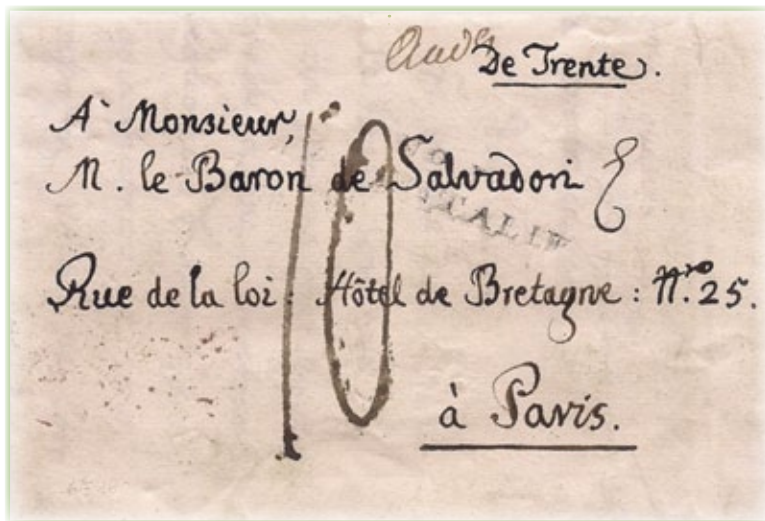 De Trente.
A Monsieur,
M. le Baron de Salvadori
Rue de la loi : Hôtel de Bretagne : N.ro 25.
à Paris.
10